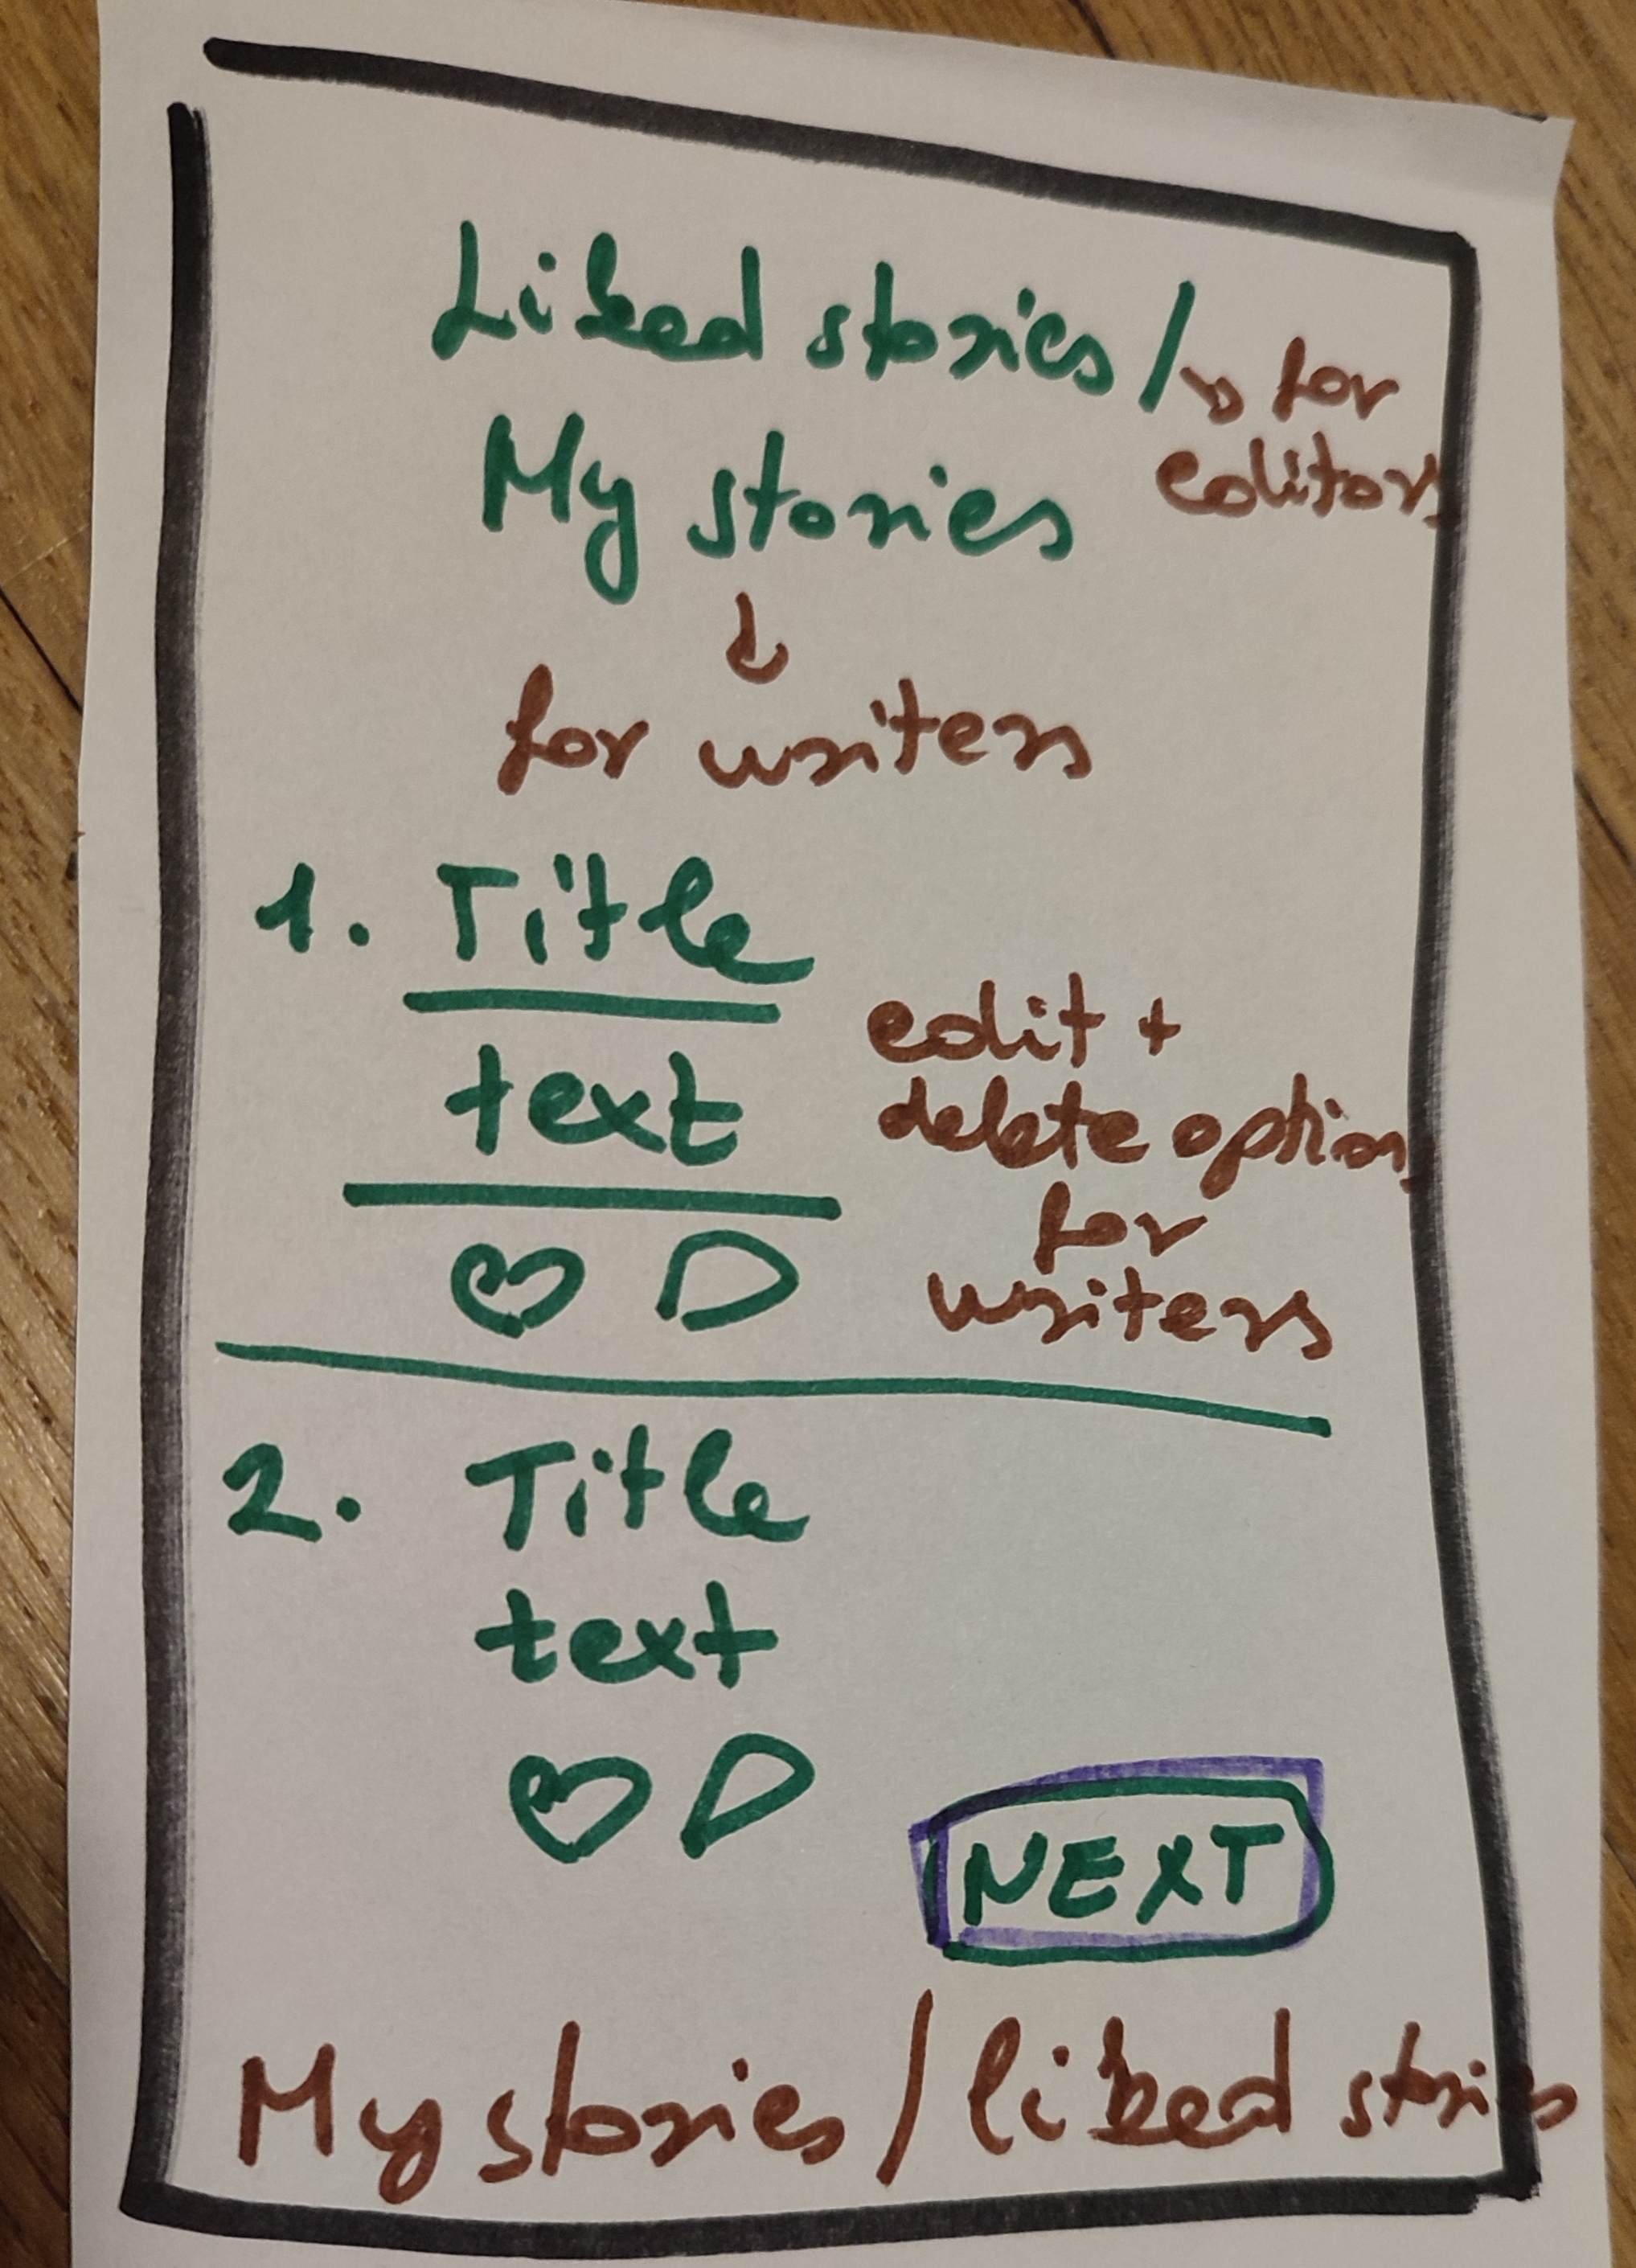 Liked stories /
→ for
editors
My stories
for writers
1. Title
text
edit +
delete option
for
writers
2. Title
text
NEXT
My stories / liked stories